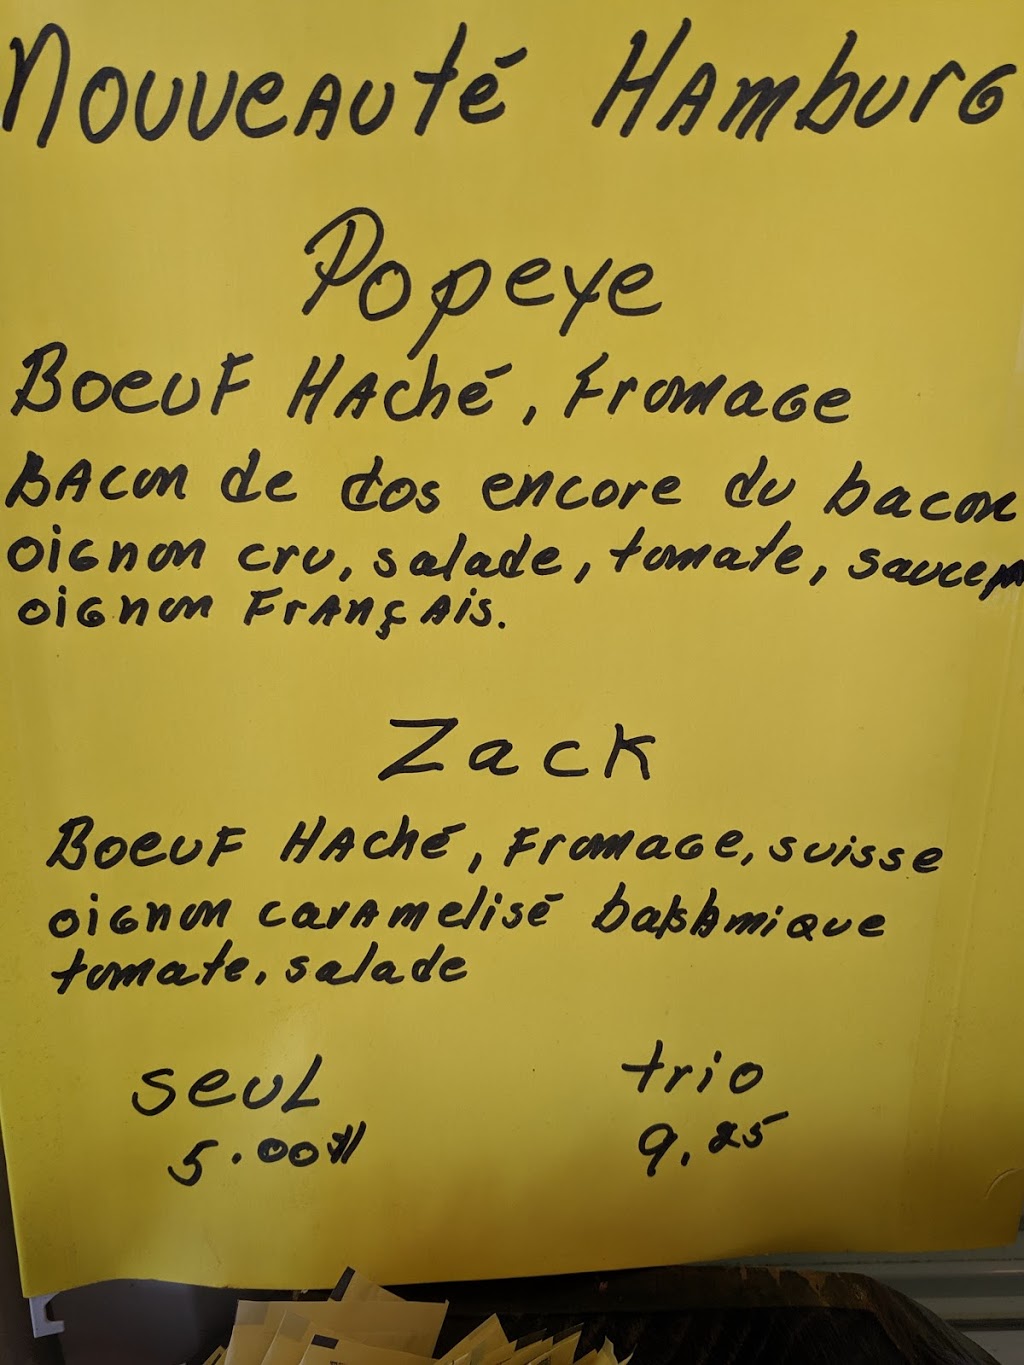 Nouveauté Hamburg
Popeye
Boeuf Haché, Fromage
Bacon de dos encore du bacon
oignon cru, salade, tomate, sauce
oignon Français.
Zack
Boeuf Haché, Fromage, suisse
oignon caramelisé balsamique
tomate, salade
seul trio
5.00 9.25